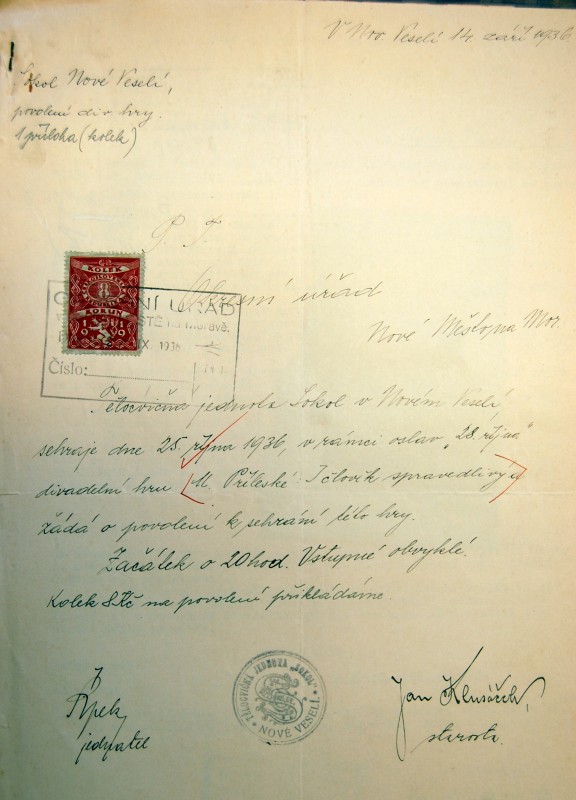 V Nov. Veselí 14. září 1936
Sokol Nové Veselí,
povolení div. hry.
1 příloha (kolek)
P. T.
KOLEK
8
KORUN
1919
Okresní úřad
Nové Město na Mor.
ÚŘAD
na Moravě.
IX. 1936
Číslo:
Tělocvičná jednota Sokol v Novém Veselí
sehraje dne 25. října 1936, v rámci oslav „28. října"
divadelní hru M. Příleské: I člověk spravedlivý a
žádá o povolení k sehrání této hry.
Začátek o 20 hod. Vstupné obvyklé.
Kolek 8 Kč na povolení přikládáme.
TĚLOCVIČNÁ JEDNOTA „SOKOL"
NOVÉ VESELÍ.
jednatel
Jan Klusáček,
starosta.